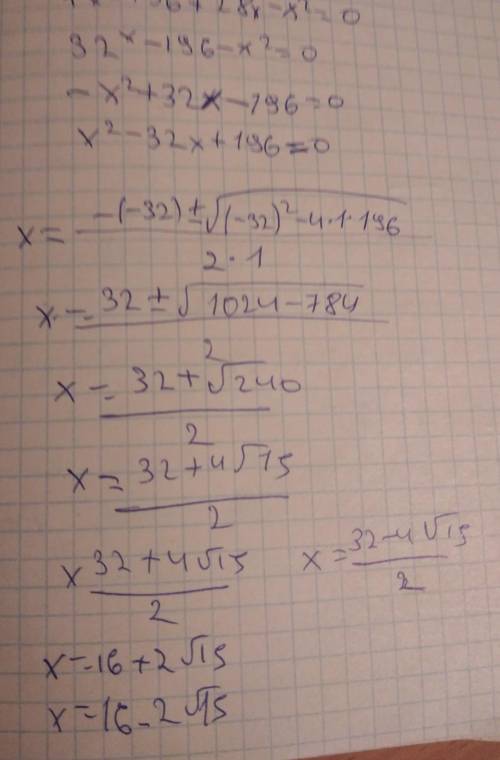 +28x-x²=0
32ˣ-196-x²=0
-x²+32x-196=0
x²-32x+196=0
x=(-(-32)±√((-32)²-4·1·196))/(2·1)
x=(32±√(1024-784))/2
x=(32+√240)/2
x=(32+4√15)/2
x (32+4√15)/2 x=(32-4√15)/2
x=16+2√15
x=16-2√15